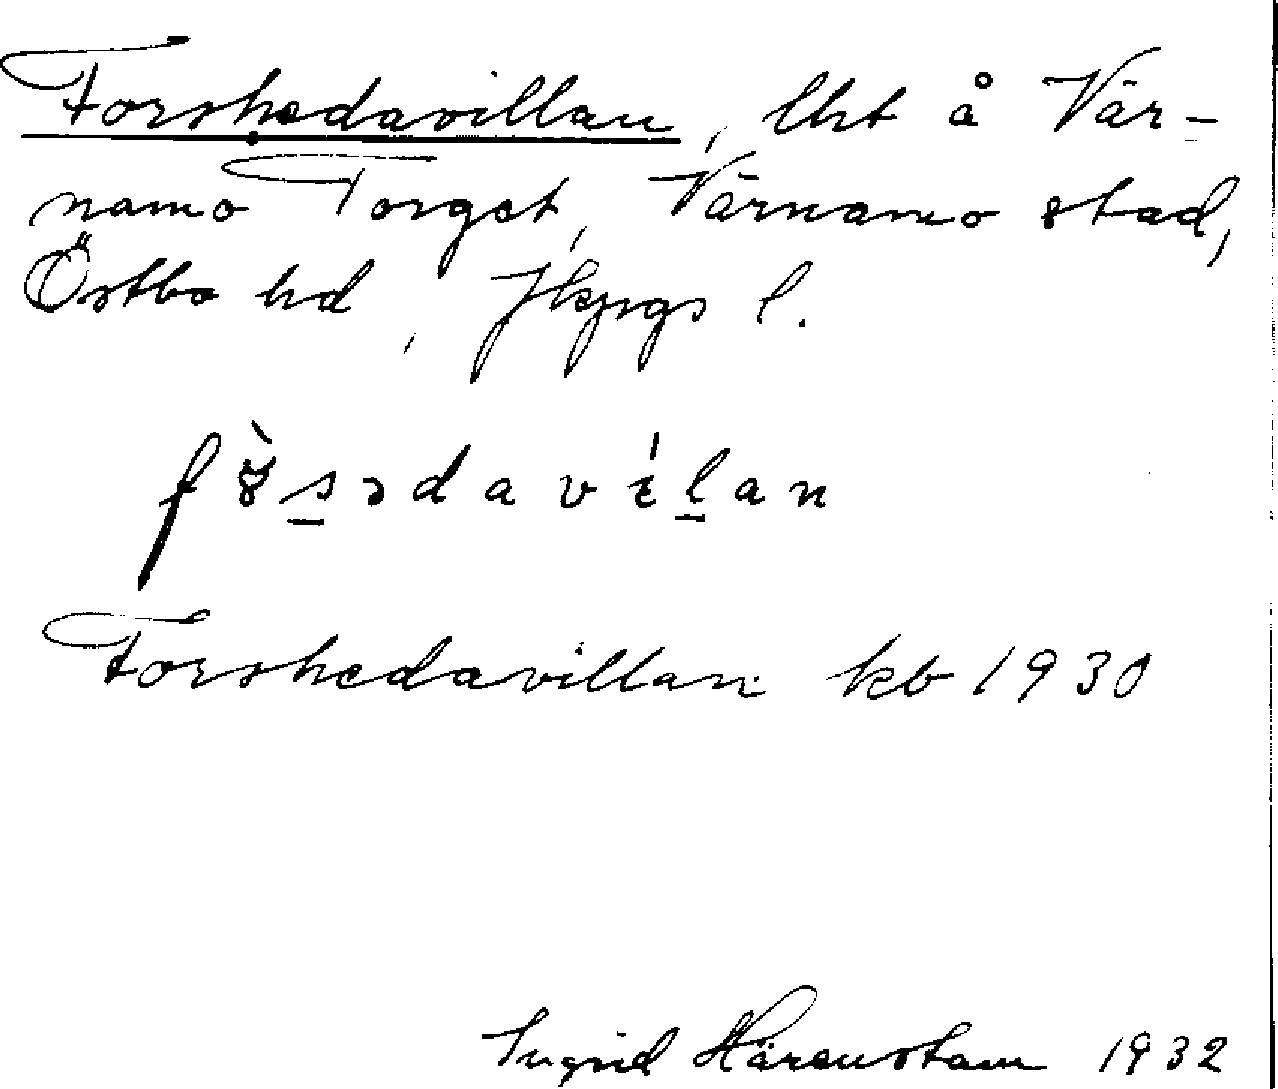 Forshedavillan, lht å Vär-
namo Torget, Värnamo stad,
Östbo hd, Jkpgs l.
Forshedavillan kb 1930
Ingrid Härenstam 1932